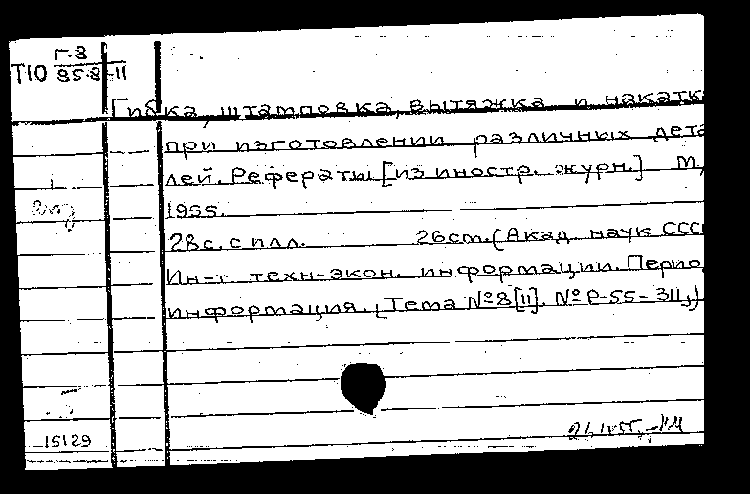 Г-8
Т10 85-8-11
Гибка, штамповка, вытяжка и накатк
при изготовлении различных дета
лей. Рефераты [из иностр. журн.] М,
1955.
28с. с илл. 26см. (Акад. наук СССР
Ин-т техн-экон. информации. Перио
информация. Тема №8[11]. №Р-55-311)
15129